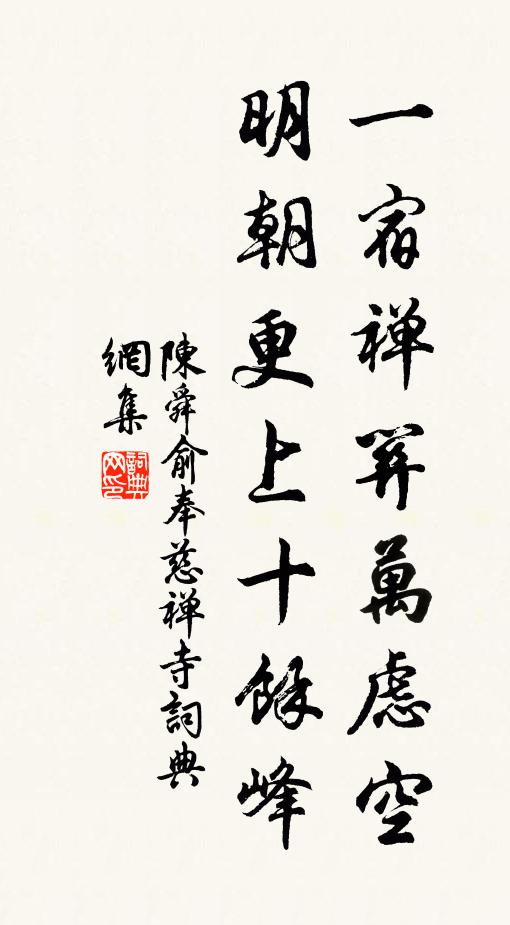 一宿禅關萬慮空
明朝更上十餘峰
陳舜俞奉慈禅寺詞典
網集
詞典
网印